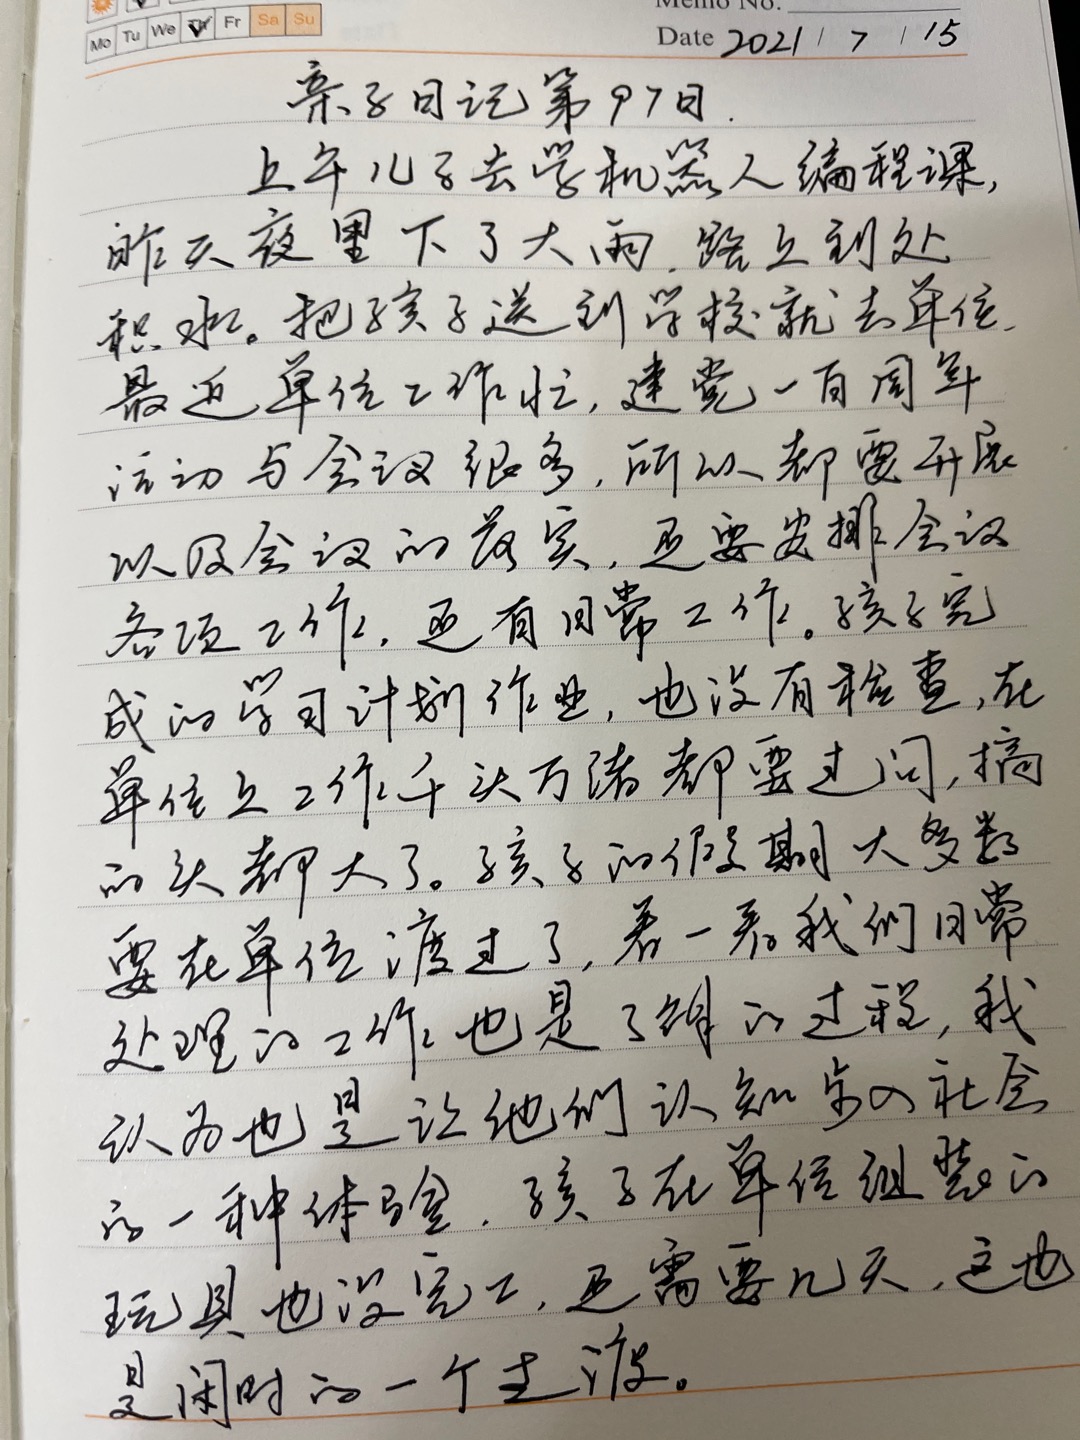 Memo No.
Mo Tu We Th Fr Sa Su
Date 2021 / 7 / 15
亲子日记第97日.
上午儿子去学机器人编程课,
昨天夜里下了大雨,路上到处
积水。把孩子送到学校就去单位.
最近单位工作忙,建党一百周年
活动与会议很多,所以都要开展
以及会议的落实,还要安排会议
各项工作,还有日常工作。孩子完
成的学习计划作业,也没有检查,在
单位上工作千头万绪都要过问,搞
的头都大了。孩子的假期大多数
要在单位渡过了,看一看我们日常
处理的工作也是了解的过程,我
认为也是让他们认知步入社会
的一种体验,孩子在单位组装的
玩具也没完工,还需要几天,这也
是闲时的一个主渡。